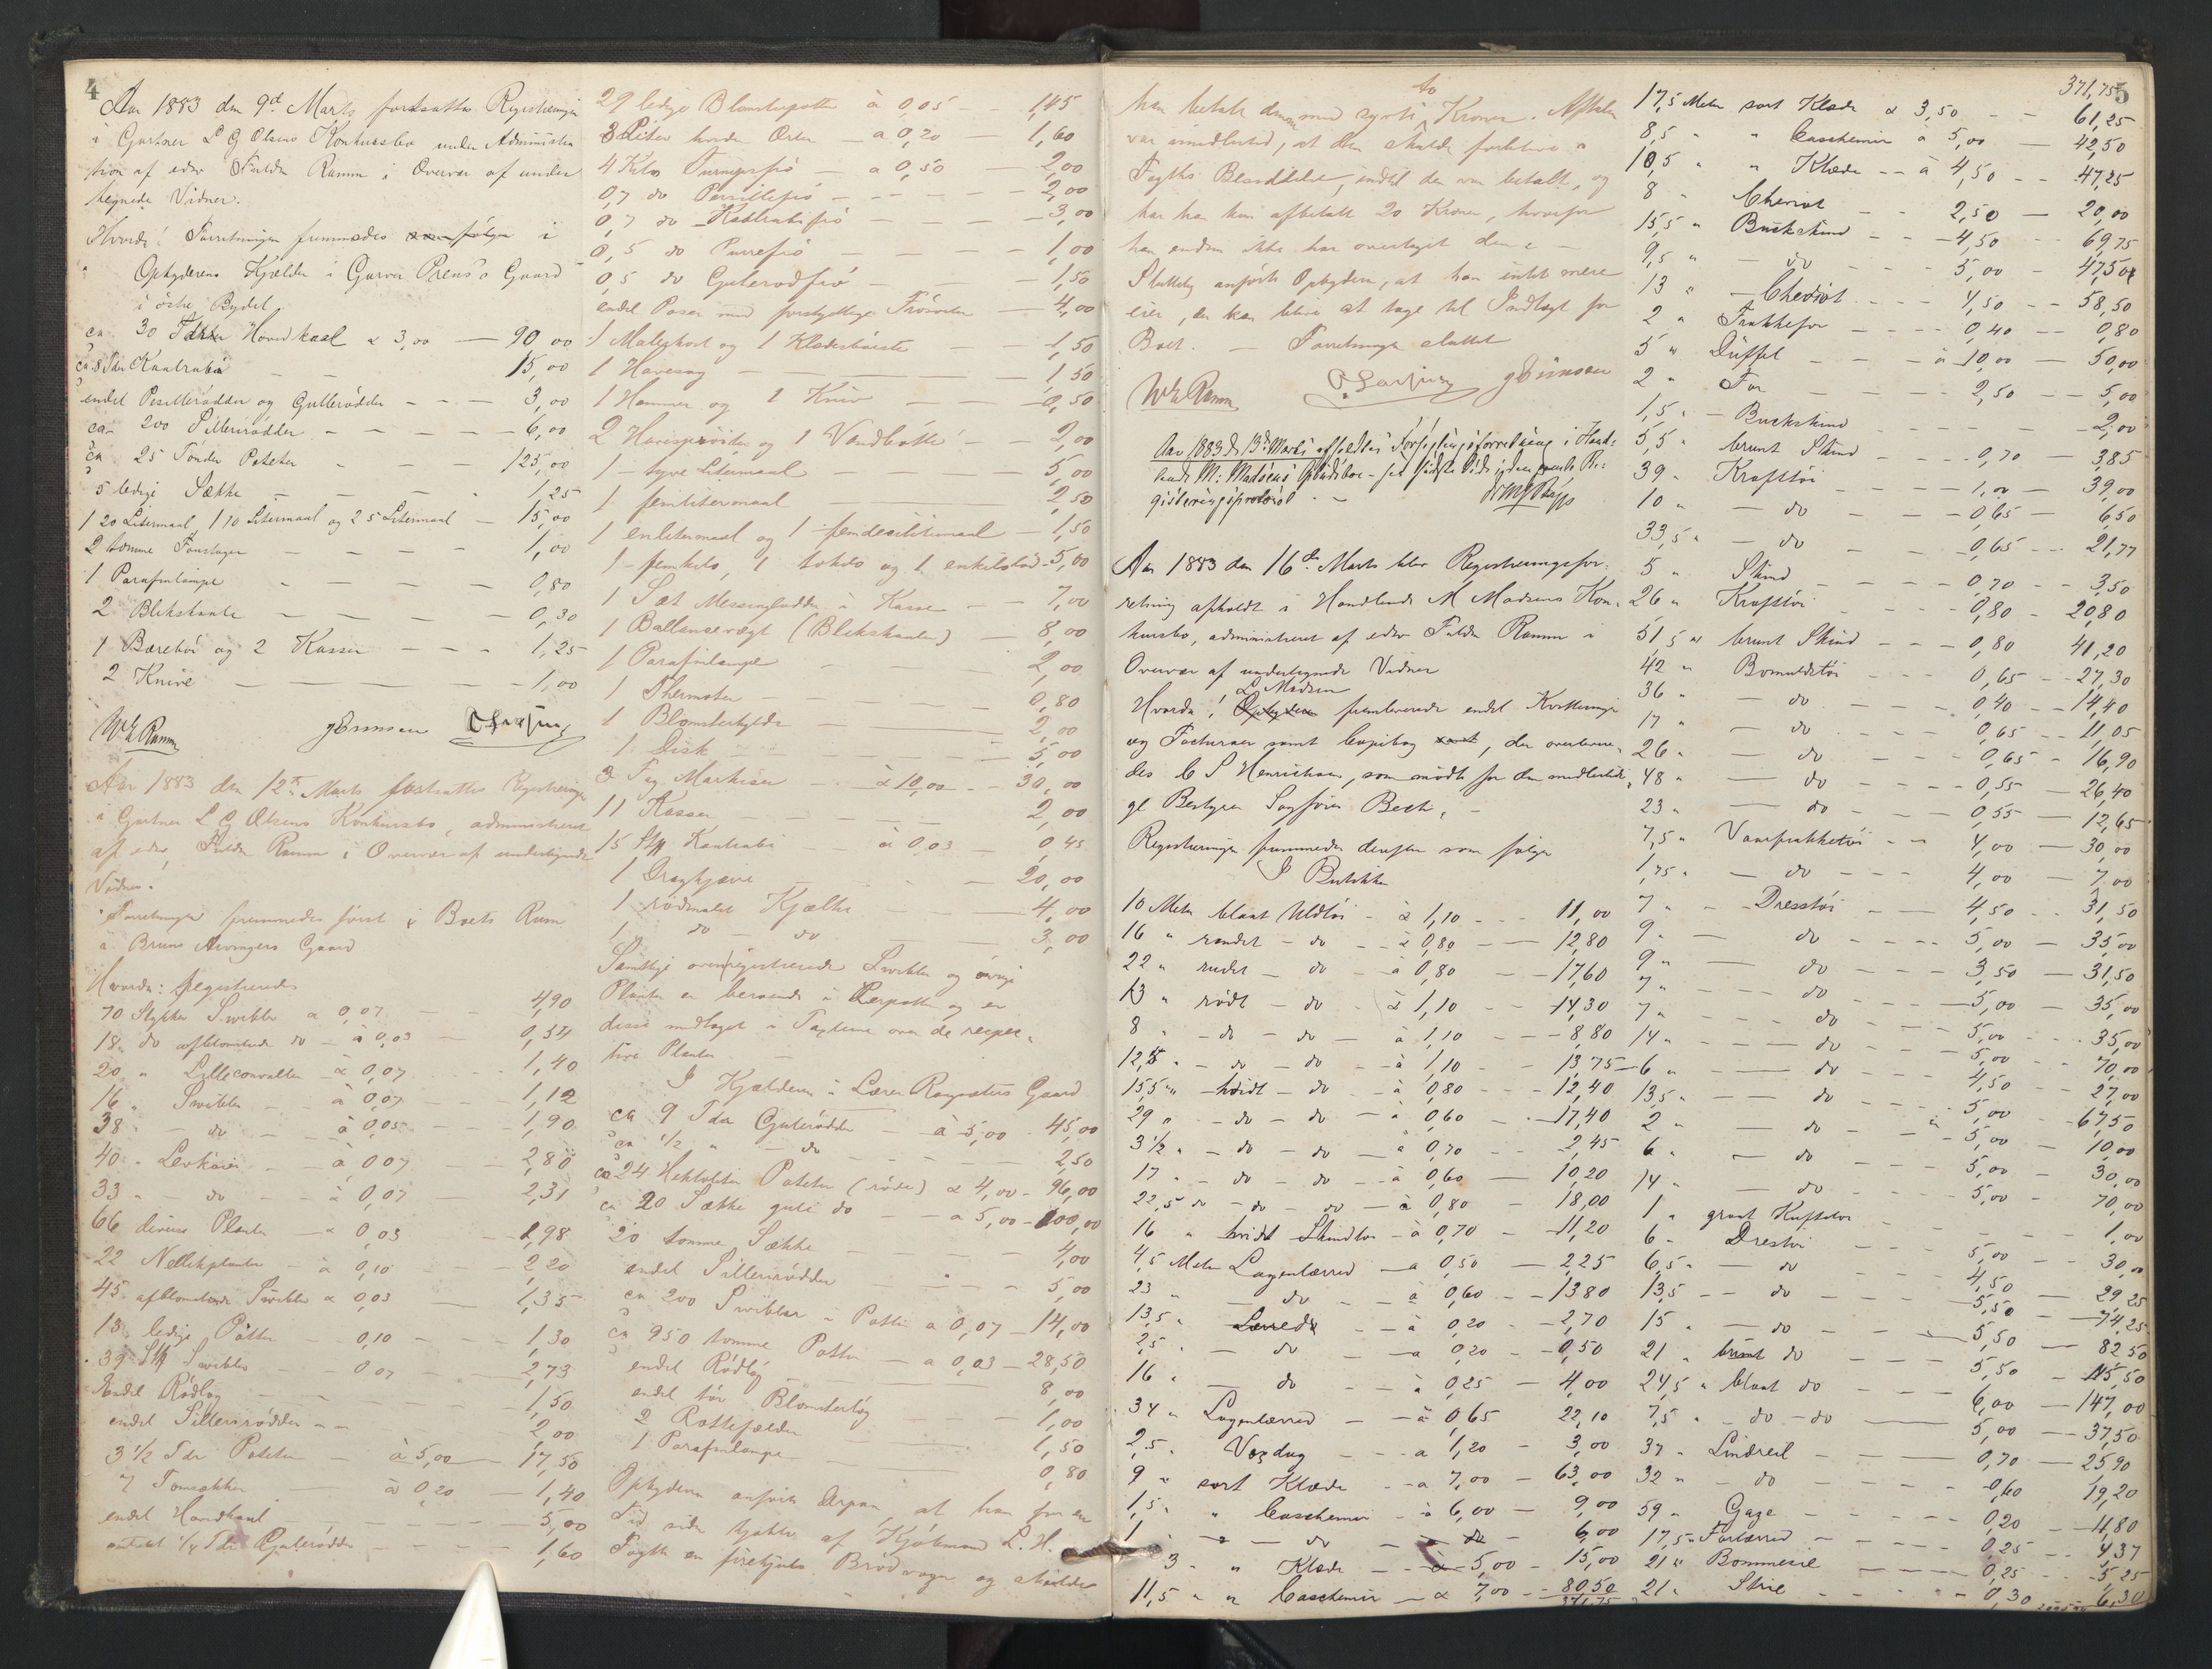 4
Aar 1883 den 9de Marts fortsattes Registreringen
i Gartner L G Olsens Konkursbo under Administra
tion af edsv Fuldm Ramm i Overvær af under
tegnede Vidner.
Hvorda! Forretningen fremmedes som følger i
Opbyderens Kjælder i Garver Prens's Gaard
i østre Bydel.
ca 30 Tdr Hovedkaal a 3,00 — 90,00
ca 8 Tdr Kaalrabi — — 15,00
endel Persillerødder og Gullerødder - - — 3,00
ca 200 Sillerirødder - - — — 6,00
ca 25 Tønder Poteter - - — 125,00
5 ledige Sække — — - - 1,25
1 20 Litermaal, 1 10 Litermaal og 2 5 Litermaal — 15,00
2 tomme Foustager — - - - 1,00
1 Parafinlampe - - - — 0,80
2 Blikkande — — - — 0,30
1 Bærebør og 2 Kasser — - - 1,25
2 Knive — — — 1,00
W E Ramm
Aar 1883 den 12te Marts fortsattes Registreringen
i Gartner L G Olsens Konkursbo, administreret
af edsv. Fuldm Ramm i Overvær af undertegnede
Vidner.
Forretningen fremmedes først i Boets Rum
i Bruns Arvingers Gaard
Hvorda: Registreredes
70 Stykker Swibler a 0,07 - — 4,90
18 do afblomstrede do — à 0,03 — 0,54
20 " Lilleconvaller — à 0,07 - - 1,40
16 " Swibler - - à 0,07 — 1,12
38 - do — - à 0,05 - - 1,90
40 " Levkøier — — à 0,07 — 2,80
33 " — do - - à 0,07 — 2,31
66 diverse Planter — à 0,03 - 1,98
22 Nellikplanter - à 0,10 - - 2,20
45 afblomstrede Swibler a 0,03 — 1,35
13 ledige Potter — 0,10 - - - 1,30
39 Stk Swibler - - 0,07 - - 2,73
Endel Rødløg - - - 1,50
endel Sillerirødder - - — 2,00
3 1/2 Tdr Poteter — à 5,00 — 17,50
7 Tomsækker — à 0,20 — 1,40
endel Hovedkaal - - - 5,00
1/4 Tdr Gulerødder - - - 1,60
29 ledige Blomsterpotter à 0,05 — 1,45
8 Liter Erter — a 0,20 — 1,60
4 Kilo Turnipsfrø — a 0,50 — 2,00
0,7 do Persillefrø — - - - 2,00
0,7 do Kaalrabifrø — — — 3,00
0,5 do Purrefrø — — — 1,00
0,5 do Gulerodfrø — — - 1,50
endel Poser med forskjellige Frøsorter — 4,00
1 Malerkost og 1 Klædesbørste - — 1,50
1 Havesag — — — 1,50
1 Hammer og 1 Kniv — — 0,50
2 Havesprøiter og 1 Vandbøtte - — 2,00
1 — tyve Litermaal — — 5,00
1 femlitermaal — 2,50
1 enlitermaal og 1 femdecilitermaal — 1,50
1 — femkilo, 1 tokilo og 1 enkilolod — 5,00
1 Sæt Messinglodder i Kasse - — 7,00
1 Ballancevægt (Blikskaaler) — 8,00
1 Parafinlampe — 2,00
1 Thermoter — 0,80
1 Blomsterhylde — 2,00
1 Disk — — 5,00
3 Fag Markiser — à 10,00 - - 30,00
11 Kasser — — — 2,00
15 Stk Kaalrabi — à 0,03 — 0,45
1 Dragkjærre — — 20,00
1 rødmalet Kjælke — 4,00
1 do — do — 3,00
Samtlige overregistrerede Swibler og øvrige
Planter er beroende i Lerpotter og er
disse medtaget i Taxterne over de respec-
tive Planter —
I Kjælderen i Lærer Gaard
ca 9 Tdr Gulerødder — à 5,00 - 45,00
ca 1/2 " — do — - - 2,50
ca 24 Hektoliter Poteter (røde) a 4,00 - 96,00
ca 20 Sække gule do — a 5,00 - 100,00
20 tomme Sække — - - 4,00
endel Sillerirødder — - - 5,00
ca 200 Swibler i Potter a 0,07 — 14,00
ca 950 tomme Potter — a 0,03 — 28,50
endel Rødløg — — 8,00
endel tør Blomsterløg — 1,00
2 Rottefælder — 1,50
1 Parafinlampe — 0,80
Opbyderen anførte at han for en
Tid siden kjøbte af Kjøbmand L. H.
Fogth en firehjuls Brødvogn og skulde
5
han betale denne med syvti to Kroner. Aftalen
var imidlertid, at den skulde forblive i
Fogths Besiddelse, indtil den var betalt, og
har han kun afbetalt 20 Kroner, hvorfor
han endnu ikke har overtaget den. —
Sluttelig anførte Opbyderen, at han intet mere
eier, der kan blive at tage til Indtægt for
Boet. — Forretningen sluttet
W E Ramm
Aar 1883 d. 13de Marts afholdtes Forseglingsforretning i Hand-
lende M: Madsens Opbudsbo — se sidste Side i den gamle Re-
gistreringsprotocol. —
Aar 1883 den 16de Marts blev Registreringsfor-
retning afholdt i Handlende M Madsens Kon-
kursbo, administreret af edsv Fuldm Ramm i
Overvær af undertegnede Vidner
Hvorda! Opbyderen L Madsen fremleverede endel Kvitteringer
og Facturaer samt Copibog samt, der overlevere-
des C S Henrichsen, som mødte for den midlertidi-
ge Bestyrer Sagfører Bech. —
Registreringen fremmedes derefter som følger
I Butikken
10 Meter blaat Uldtøi - à 1,10 - - - 11,00
16 " randet — do - - à 0,80 - — 12,80
22 " rudet — do - à 0,80 - - 17,60
13 " rødt — do - à 1,10 - - 14,30
8 " - do — do — à 1,10 - - - 8,80
12,5 " — do — do — à 1,10 - 13,75
15,5 " hvidt — do - à 0,80 - - 12,40
29 " — do — do — à 0,60 - 17,40
3 1/2 " — do — do - à 0,70 - - 2,45
17 " — do — do - - à 0,60 — 10,20
22,5 do — do — do — à 0,80 - 18,00
16 " hvidt Skindtøi - à 0,70 - 11,20
4,5 Meter Lagenlærred — a 0,50 — 2,25
23 " — do - - à 0,60 - - 13,80
13,5 " Lærred — - à 0,20 - - 2,70
2,5 " — do — a 0,20 - - 0,50
16 " — do - à 0,25 - 4,00
34 " Lagenlærred — - à 0,65 22,10
2,5 " Voxdug — - a 1,20 - 3,00
9 " sort Klæde - - a 7,00 - 63,00
1,5 " " Caschemir - à 6,00 — 9,00
1 " — do — do 6,00
3 - " Klæde - - à 5,00 - 15,00
11,5 " " Caschemir — a 7,00 - - 80,50
371,75
371,75
17,5 Meter sort Klæde a 3,50 - - 61,25
8,5 " " Caschemir à 5,00 — 42,50
10,5 " " Klæde - - à 4,50 - - 47,25
8 " Cheviot - - 2,50 — 20,00
15,5 " Buckskind - - 4,50 - - 69,75
9,5 " — do - - - 5,00 - 47,50
13 " — Cheviot - - - 4,50 - - 58,50
2 " Frakkefor - - - 0,40 - - 0,80
5 " Düffel - - - à 10,00 — 50,00
2 " For - - 2,50 - - 5,00
1,5 " — Buckskind - - - 2,00
5,5 " brunt Skind - - - 0,70 - 3,85
39 " Kraftøi - - - 1,00 - 39,00
10 " — do - - - 0,65 — 6,50
33,5 " — do - - 0,65 - - 21,77
5 " Skind - - - 0,70 - - 3,50
26 " Kraftøi - - - 0,80 - 20,80
51,5 " brunt Skind - - - 0,80 41,20
42 " Bomuldstøi - - - 0,65 - - 27,30
36 " — do - - - 0,40 - - 14,40
17 " — do - - 0,65 - - 11,05
26 " — do - - - 0,65 - 16,90
48 " — do - - - 0,55 - - 26,40
23 " — do - - - 0,55 — 12,65
7,5 " Vaarfrakketøi - - 4,00 — 30,00
1,75 " — do - - - 4,00 — 7,00
7 " - Dresstøi - — 4,50 - - 31,50
9 " — do - - - 5,00 — 35,00
9 " — do - - - 3,50 — 31,50
7 " — do - - 5,00 - 35,00
7 " - - - do - - 5,00 - - 35,00
14 " - - do - - 5,00 - 70,00
6 " — do - - 4,50 - - 27,00
13,5 " — do - - 5,00 - 67,50
2 " — do - - 5,00 — 10,00
6 " — do - - - 5,00 - 30,00
14 " — do - - - 5,00 - 70,00
1 " graat Kuftetøi - - - 1,00
6 " Dresstøi - - 5,00 - - 30,00
6,5 " — do - - 4,50 - - 29,25
13,5 - - do - - - 5,50 — 74,25
15 " — do - - - 5,50 — 82,50
21 " brunt do - - - 5,50 — 115,50
24,5 " blaat do - - - 6,00 — 147,00
7,5 " - do - do — 5,00 — 37,50
37 " Lindreil — — 0,70 — 25,90
32 " — do - - - 0,60 19,20
59 " Gaze - - - 0,20 — 11,80
17,5 " Forlærred - - - 0,25 - - 4,37
21 " Bommesie - - - 0,25 - - 5,25
21 " Strie - - - 0,30 6,30